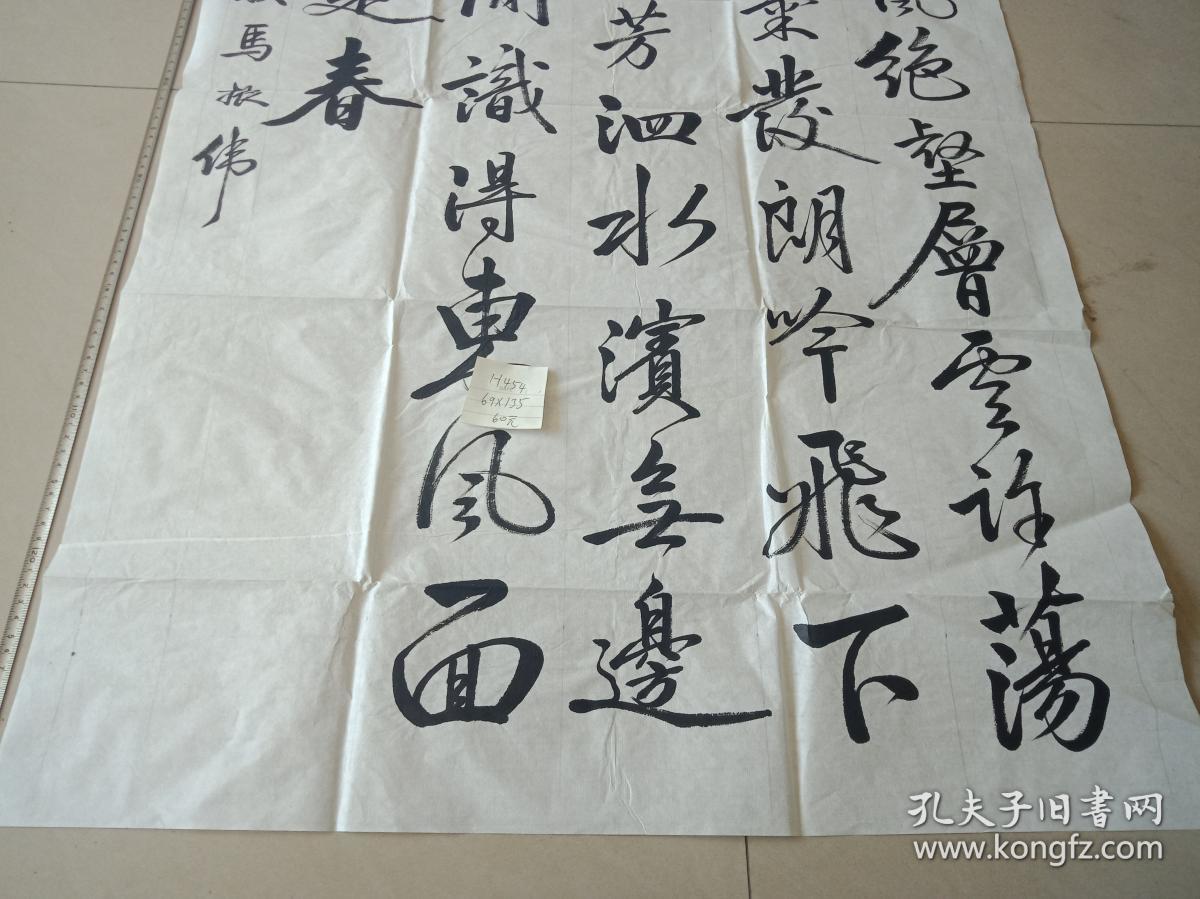 風絕壑層雲許蕩
發朗吟飛下
芳泗水濱無邊
閒識得東風面
是春
馬振伟
H454
69X135
60元
孔夫子旧書网
www.kongfz.com